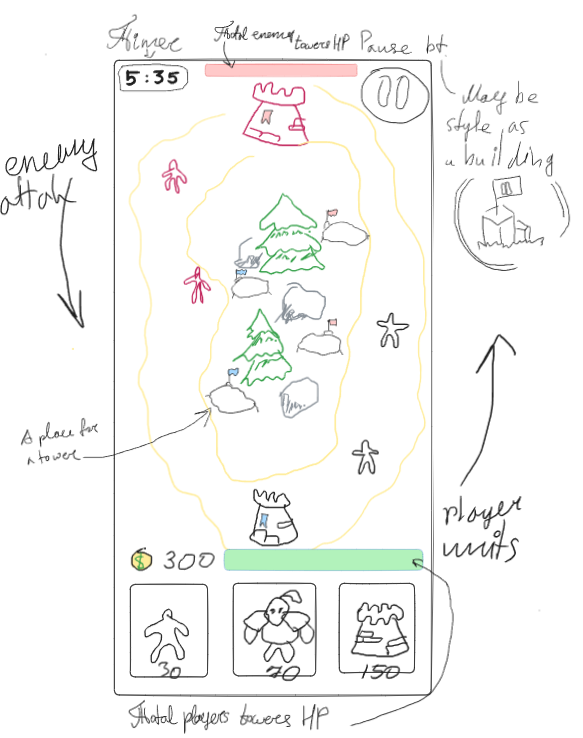 Timer
Total enemy towers HP
Pause bt.
5:35
May be
style as
a building
enemy
attak
A place for
a tower
player
units
$ 300
30
70
150
Total players towers HP